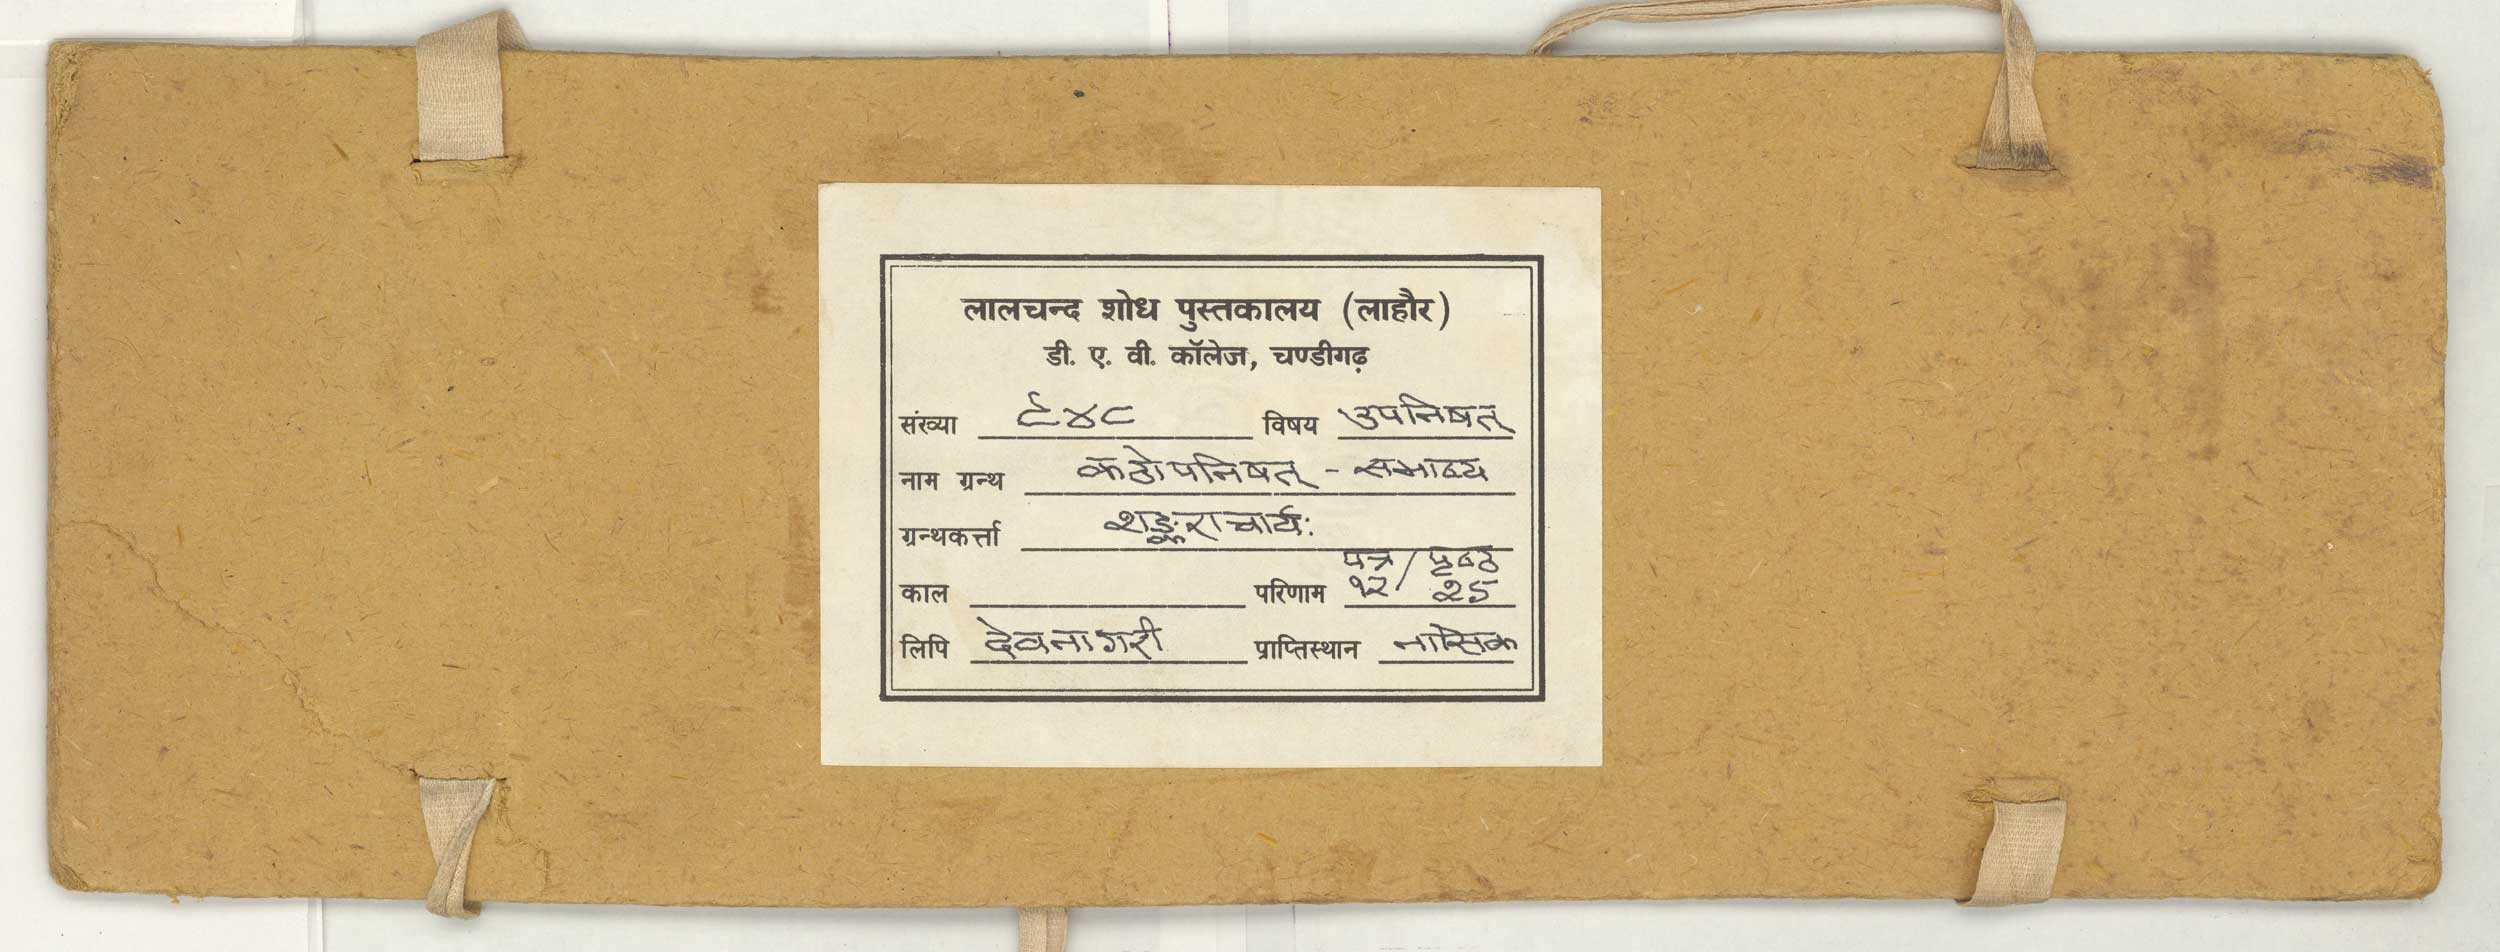 लालचन्द शोध पुस्तकालय (लाहौर)
डी. ए. वी. कॉलेज, चण्डीगढ़
संख्या ९४८ विषय उपनिषत्
नाम ग्रन्थ कठोपनिषत् - सभाष्य
ग्रन्थकर्त्ता शङ्कराचार्यः
पत्र / पृष्ठ
काल परिणाम १२/ २५
लिपि देवनागरी प्राप्तिस्थान नासिक